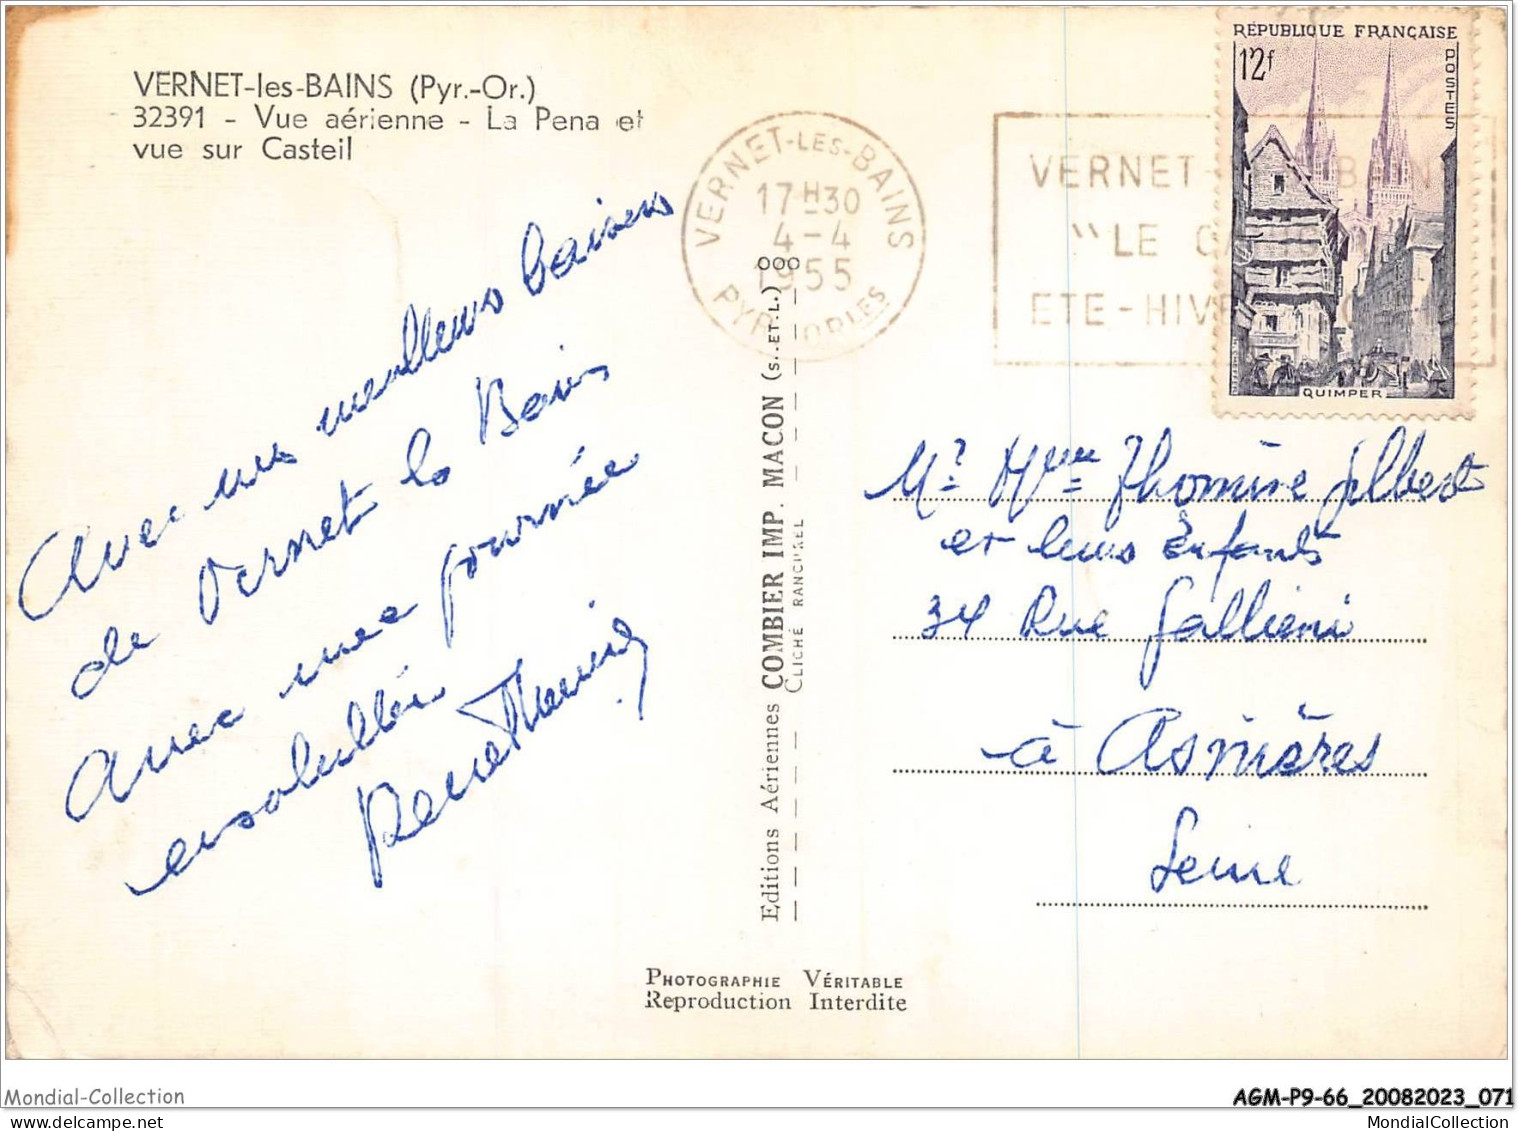 VERNET-les-BAINS (Pyr.-Or.)
32391 - Vue aérienne - La Pena et
vue sur Casteil
Avec nos meilleurs baisers
de Vernet les Bains
avec une journée
ensoleillée
Renée
VERNET-LES-BAINS
17H30
4-4
1955
PYR. ORLES
VERNET BAINS
"LE
ETE-HIVER
RÉPUBLIQUE FRANÇAISE
12f
POSTES
QUIMPER
Editions Aériennes COMBIER IMP. MACON (S.-ET-L.) OOO
CLICHÉ RANCUREL
Mr Mme Thomine Gilbert
et leurs Enfants
34 Rue Gallieni
à Asnières
Seine
PHOTOGRAPHIE VÉRITABLE
Reproduction Interdite
Mondial-Collection
AGM-P9-66_20082023_071
MondialCollection.com
MondialCollection.com